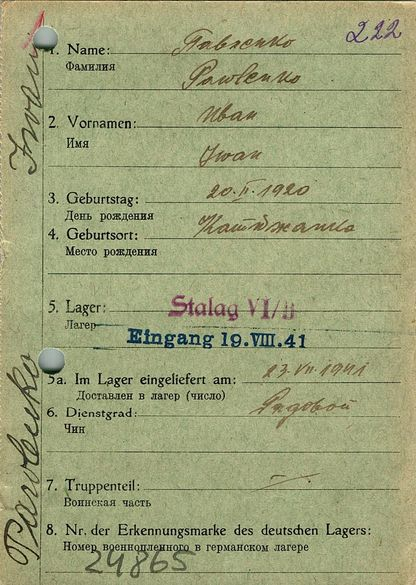 222
1. Name: Павленко
Фамилия
Pawlenko
2. Vornamen: Иван
Имя
Iwan
3. Geburtstag: 20. II. 1920
День рождения
4. Geburtsort:
Место рождения
5. Lager: Stalag VI/B
Лагер
Eingang 19. VIII. 41
5a. Im Lager eingeliefert am: 23. VII 1941
Доставлен в лагер (число)
6. Dienstgrad: Рядовой
Чин
7. Truppenteil:
Воинская часть
8. Nr. der Erkennungsmarke des deutschen Lagers:
Номер военнопленного в германском лагере
24865
Pawlenko Iwan